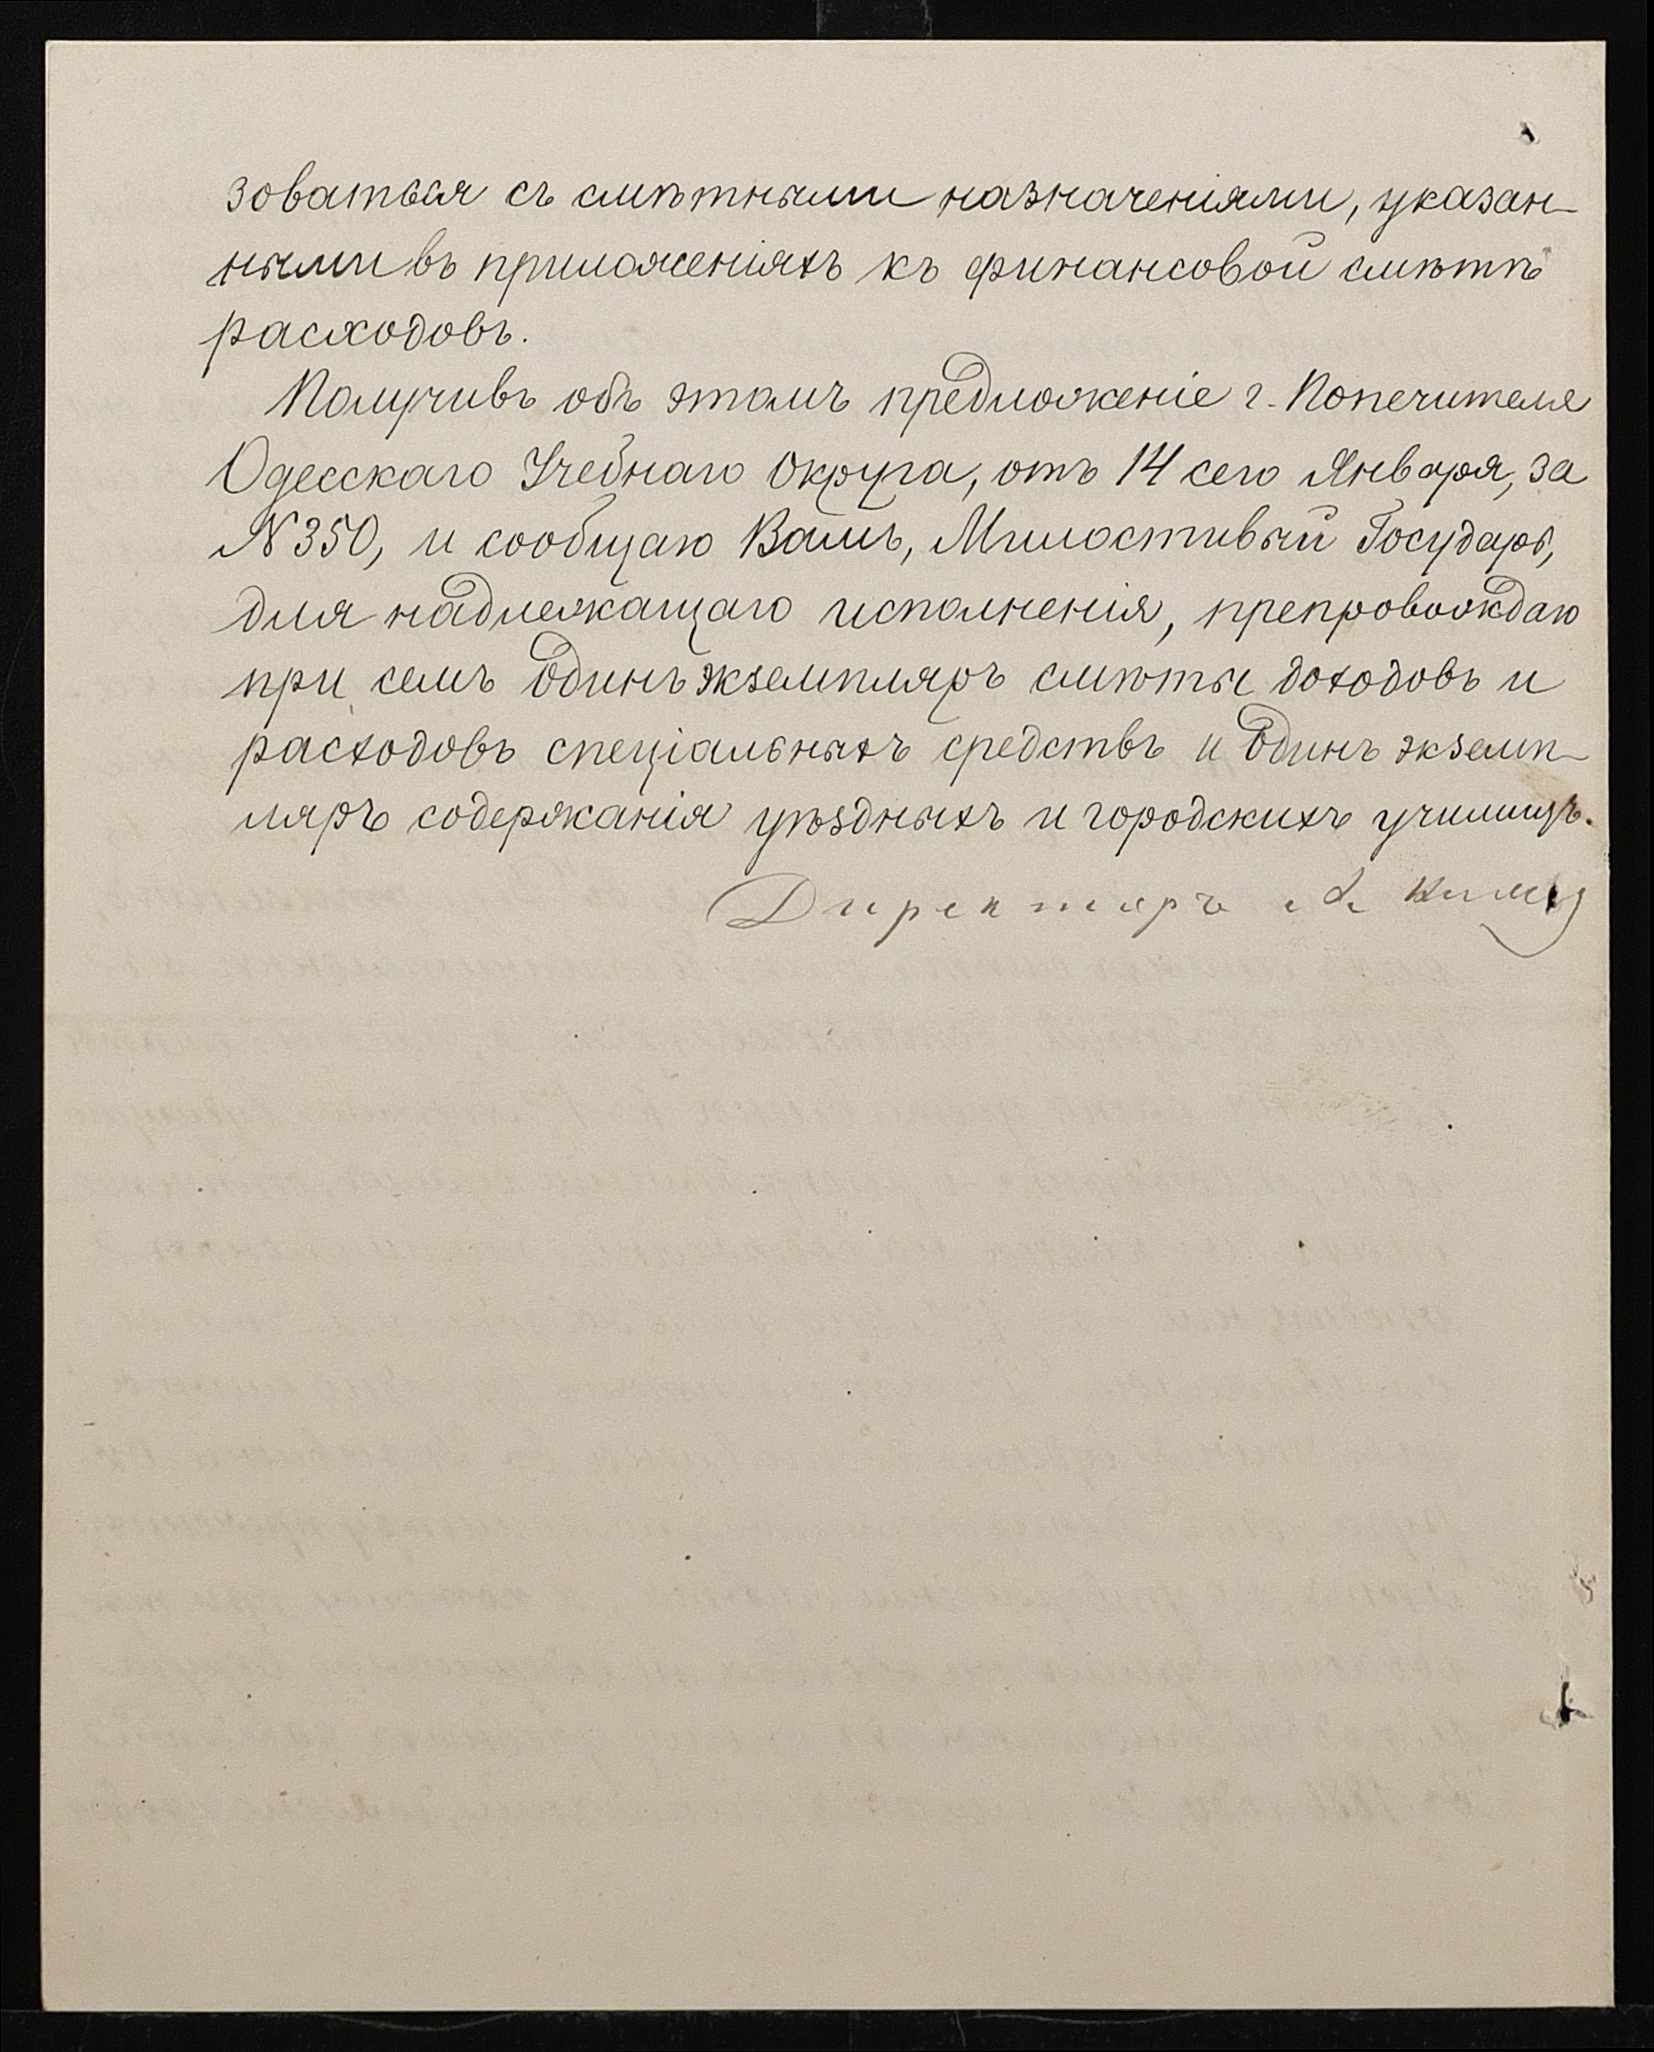 зоваться съ смѣтными назначеніями, указан-
ными въ приложеніяхъ къ финансовой смѣтѣ
расходовъ.
Получивъ объ этомъ предложеніе г. Попечителя
Одесскаго Учебнаго Округа, отъ 14 сего Января, за
№ 350, и сообщаю Вамъ, Милостивый Государь,
для надлежащаго исполненія, препровождаю
при семъ одинъ экземпляръ смѣты доходовъ и
расходовъ спеціальныхъ средствъ и одинъ экземп-
ляръ содержанія уѣздныхъ и городскихъ училищъ.
Директоръ